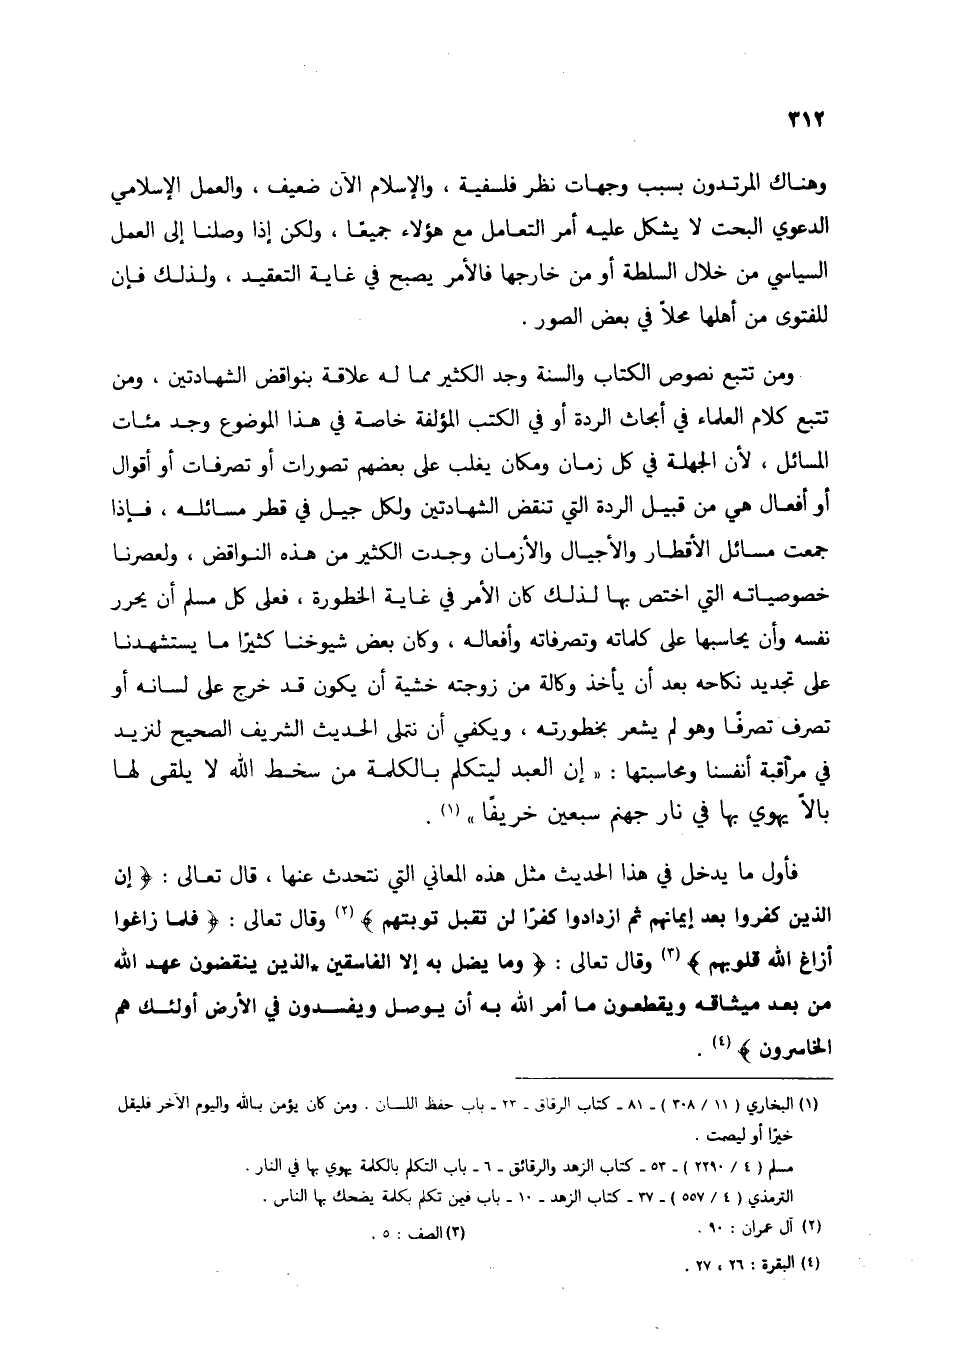 ٣١٢
وهناك المرتدون بسبب وجهات نظر فلسفية ، والإسلام الآن ضعيف ، والعمل الإسلامي
الدعوي البحت لا يشكل عليه أمر التعامل مع هؤلاء جميعًا ، ولكن إذا وصلنا إلى العمل
السياسي من خلال السلطة أو من خارجها فالأمر يصبح في غاية التعقيد ، ولذلك فإن
للفتوى من أهلها محلاً في بعض الصور .
ومن تتبع نصوص الكتاب والسنة وجد الكثير مما له علاقة بنواقض الشهادتين ، ومن
تتبع كلام العلماء في أبحاث الردة أو في الكتب المؤلفة خاصة في هذا الموضوع وجد مئات
المسائل ، لأن الجهلة في كل زمان ومكان يغلب على بعضهم تصورات أو تصرفات أو أقوال
أو أفعال هي من قبيل الردة التي تنقض الشهادتين ولكل جيل في قطر مسائله ، فإذا
جمعت مسائل الأقطار والأجيال والأزمان وجدت الكثير من هذه النواقض ، ولعصرنا
خصوصياته التي اختص بها لذلك كان الأمر في غاية الخطورة ، فعلى كل مسلم أن يحرر
نفسه وأن يحاسبها على كلماته وتصرفاته وأفعاله ، وكان بعض شيوخنا كثيرًا ما يستشهدنا
على تجديد نكاحه بعد أن يأخذ وكالة من زوجته خشية أن يكون قد خرج على لسانه أو
تصرف تصرفًا وهو لم يشعر بخطورته ، ويكفي أن نتملى الحديث الشريف الصحيح لنزيد
في مراقبة أنفسنا ومحاسبتها : « إن العبد ليتكلم بالكلمة من سخط الله لا يلقى لها
بالاً يهوي بها في نار جهنم سبعين خريفًا » (١) .
فأول ما يدخل في هذا الحديث مثل هذه المعاني التي نتحدث عنها ، قال تعالى : ﴿ إن
الذين كفروا بعد إيمانهم ثم ازدادوا كفرًا لن تقبل توبتهم ﴾ (٢) وقال تعالى : ﴿ فلما زاغوا
أزاغ الله قلوبهم ﴾ (٣) وقال تعالى : ﴿ وما يضل به إلا الفاسقين *الذين ينقضون عهد الله
من بعد ميثاقه ويقطعون ما أمر الله به أن يوصل ويفسدون في الأرض أولئك هم
الخاسرون ﴾ (٤) .
(١) البخاري ( ١١ / ٣٠٨ ) ـ ٨١ ـ كتاب الرقاق ـ ٢٣ ـ باب حفظ اللسان . ومن كان يؤمن بالله واليوم الآخر فليقل
خيرًا أو ليصمت .
مسلم ( ٤ / ٢٢٩٠ ) ـ ٥٣ ـ كتاب الزهد والرقائق ـ ٦ ـ باب التكلم بالكلمة يهوي بها في النار .
الترمذي ( ٤ / ٥٥٧ ) ـ ٣٧ ـ كتاب الزهد ـ ١٠ ـ باب فين تكلم بكلمة يضحك بها الناس .
(٢) آل عمران : ٩٠ . (٣) الصف : ٥ .
(٤) البقرة : ٢٦ ، ٢٧ .